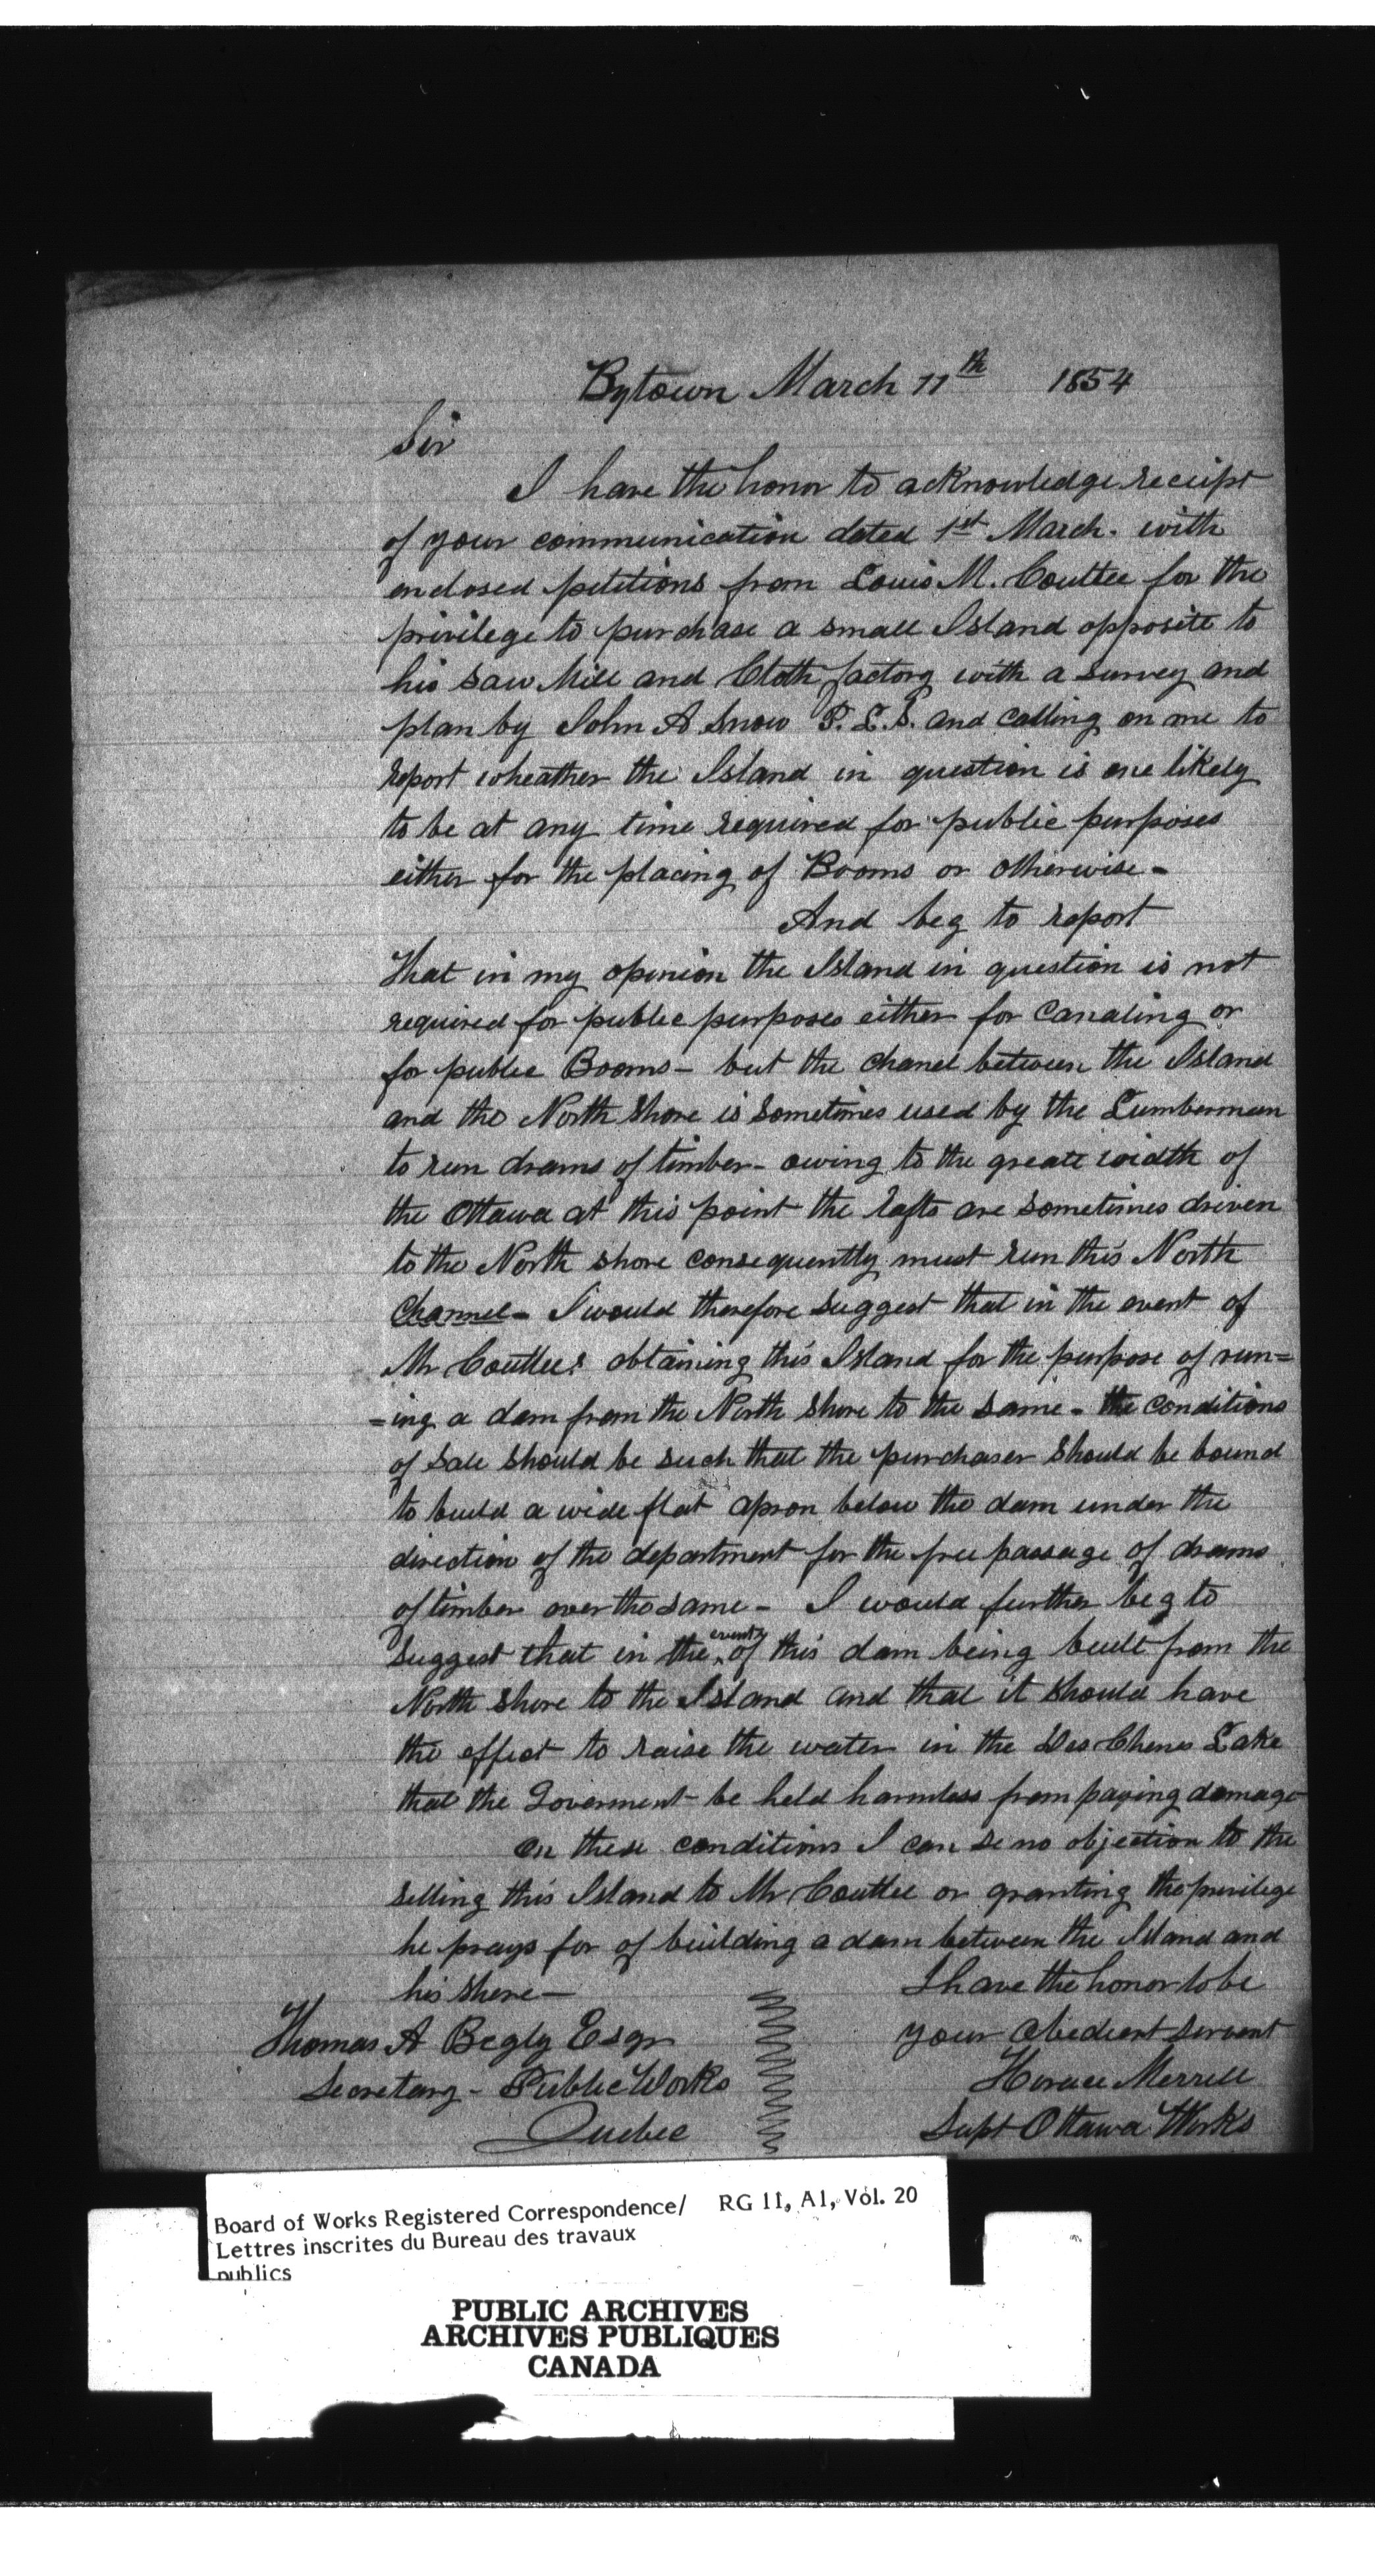 Bytown March 11th 1854
Sir
I have the honor to acknowledge receipt
of your communication dated 1st March. with
enclosed petitions from Louis M. Couttee for the
privilege to purchase a small Island opposite to
his saw Mill and Cloth factory with a survey and
plan by John A Snow P. L. S. and calling on me to
report wheather the Island in question is one likely
to be at any time required for public purposes
either for the placing of Booms or otherwise -
And beg to report
That in my opinion the Island in question is not
required for public purposes either for Canaling or
for public Booms - but the chanel between the Island
and the North Shore is sometimes used by the Lumbermen
to run drams of timber - owing to the greate width of
the Ottawa at this point the rafts are sometimes driven
to the North shore consequently must run this North
Channel - I would therefore suggest that in the event of
Mr Couttee's obtaining this Island for the purpose of run=
=ing a dam from the North Shore to the same - the conditions
of Sale should be such that the purchaser should be bound
to build a wide flat apron below the dam under the
direction of the department for the free passage of drams
of timber over the same - I would further beg to
suggest that in the event of this dam being built from the
North Shore to the Island and that it should have
the effect to raise the water in the Des Chenes Lake
that the Goverment be held harmless from paying damage
On these conditions I can se no objection to the
selling this Island to Mr Couttee or granting the privilege
he prays for of building a dam between the Island and
his Shore -
I have the honor to be
your obedient servent
Horace Merrill
Supt Ottawa Works
Thomas A Begly Esqr
Secretary - Public Works
Quebec
Board of Works Registered Correspondence/ RG 11, A1, Vol. 20
Lettres inscrites du Bureau des travaux
publics
PUBLIC ARCHIVES
ARCHIVES PUBLIQUES
CANADA